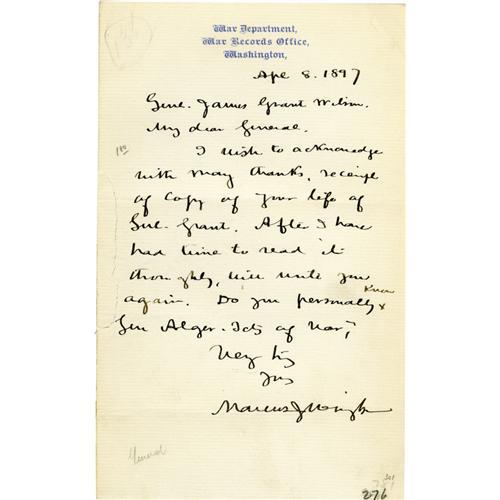 War Department,
War Records Office,
Washington,
Apl 8. 1897
Genl. James Grant Wilson.
My dear General.
I wish to acknowledge
with many thanks, receipt
of copy of your life of
Genl. Grant. After I have
had time to read it
thoroughly, will write you
again. Do you personally know x
Gen Alger. Secty of War,?
Very try
Yrs
Marcus J Wright
General
276